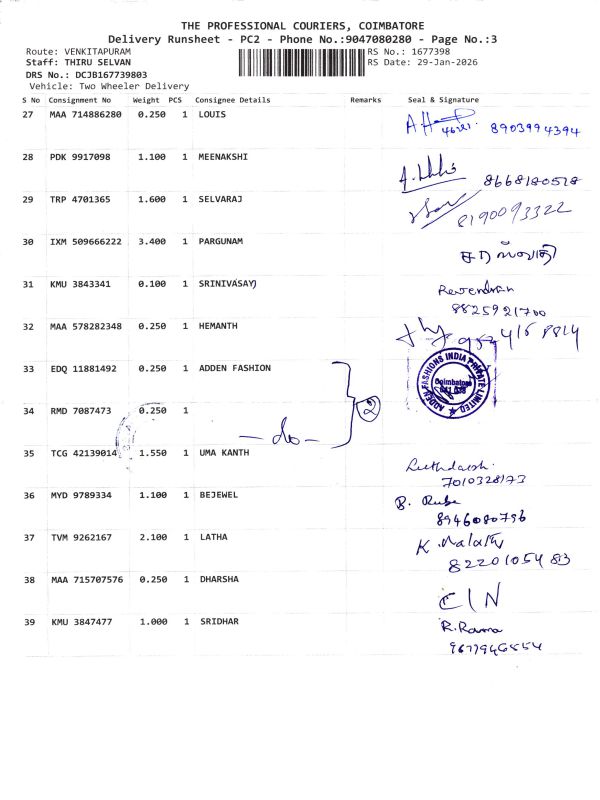 THE PROFESSIONAL COURIERS, COIMBATORE
Delivery Runsheet - PC2 - Phone No.:9047080280 - Page No.:3
Route: VENKITAPURAM RS No.: 1677398
Staff: THIRU SELVAN RS Date: 29-Jan-2026
DRS No.: DCJB167739803
Vehicle: Two Wheeler Delivery
S No Consignment No Weight PCS Consignee Details Remarks Seal & Signature
27 MAA 714886280 0.250 1 LOUIS
8903994394
28 PDK 9917098 1.100 1 MEENAKSHI
8668180518
29 TRP 4701365 1.600 1 SELVARAJ
8190093322
30 IXM 509666222 3.400 1 PARGUNAM
31 KMU 3843341 0.100 1 SRINIVASAY)
Rajendran
8825921700
32 MAA 578282348 0.250 1 HEMANTH
33 EDQ 11881492 0.250 1 ADDEN FASHION
ADDEN FASHIONS INDIA PRIVATE LIMITED
Coimbatore
34 RMD 7087473 0.250 1
- do -
2
35 TCG 42139014 1.550 1 UMA KANTH
7010328173
36 MYD 9789334 1.100 1 BEJEWEL
8946080796
37 TVM 9262167 2.100 1 LATHA
K. Malathy
8220105483
38 MAA 715707576 0.250 1 DHARSHA
C/N
39 KMU 3847477 1.000 1 SRIDHAR
R.Rama